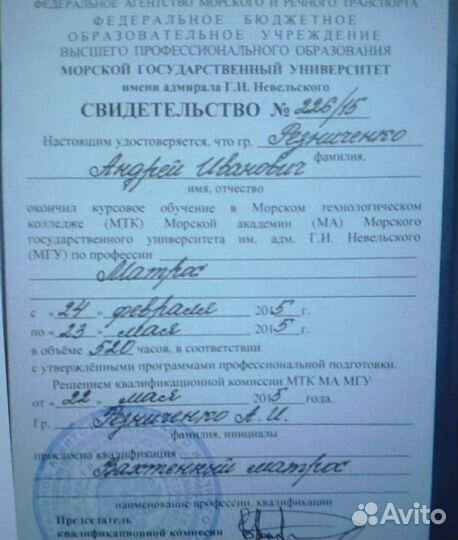 ФЕДЕРАЛЬНОЕ АГЕНТСТВО МОРСКОГО И РЕЧНОГО ТРАНСПОРТА
ФЕДЕРАЛЬНОЕ БЮДЖЕТНОЕ
ОБРАЗОВАТЕЛЬНОЕ УЧРЕЖДЕНИЕ
ВЫСШЕГО ПРОФЕССИОНАЛЬНОГО ОБРАЗОВАНИЯ
МОРСКОЙ ГОСУДАРСТВЕННЫЙ УНИВЕРСИТЕТ
имени адмирала Г.И. Невельского
СВИДЕТЕЛЬСТВО № 226/15
Настоящим удостоверяется, что гр. Резниченко
фамилия,
Андрей Иванович
имя, отчество
окончил курсовое обучение в Морском технологическом
колледже (МТК) Морской академии (МА) Морского
государственного университета им. адм. Г.И. Невельского
(МГУ) по профессии
Матрос
с «24» февраля 2015 г.
по «23» мая 2015 г.
в объёме 520 часов, в соответствии
с утверждёнными программами профессиональной подготовки.
Решением квалификационной комиссии МТК МА МГУ
от «22» мая 2015 года.
Гр. Резниченко А.И.
фамилия, инициалы
присвоена квалификация
Вахтенный матрос
наименование профессии, квалификации
Председатель
квалификационной комиссии
Avito